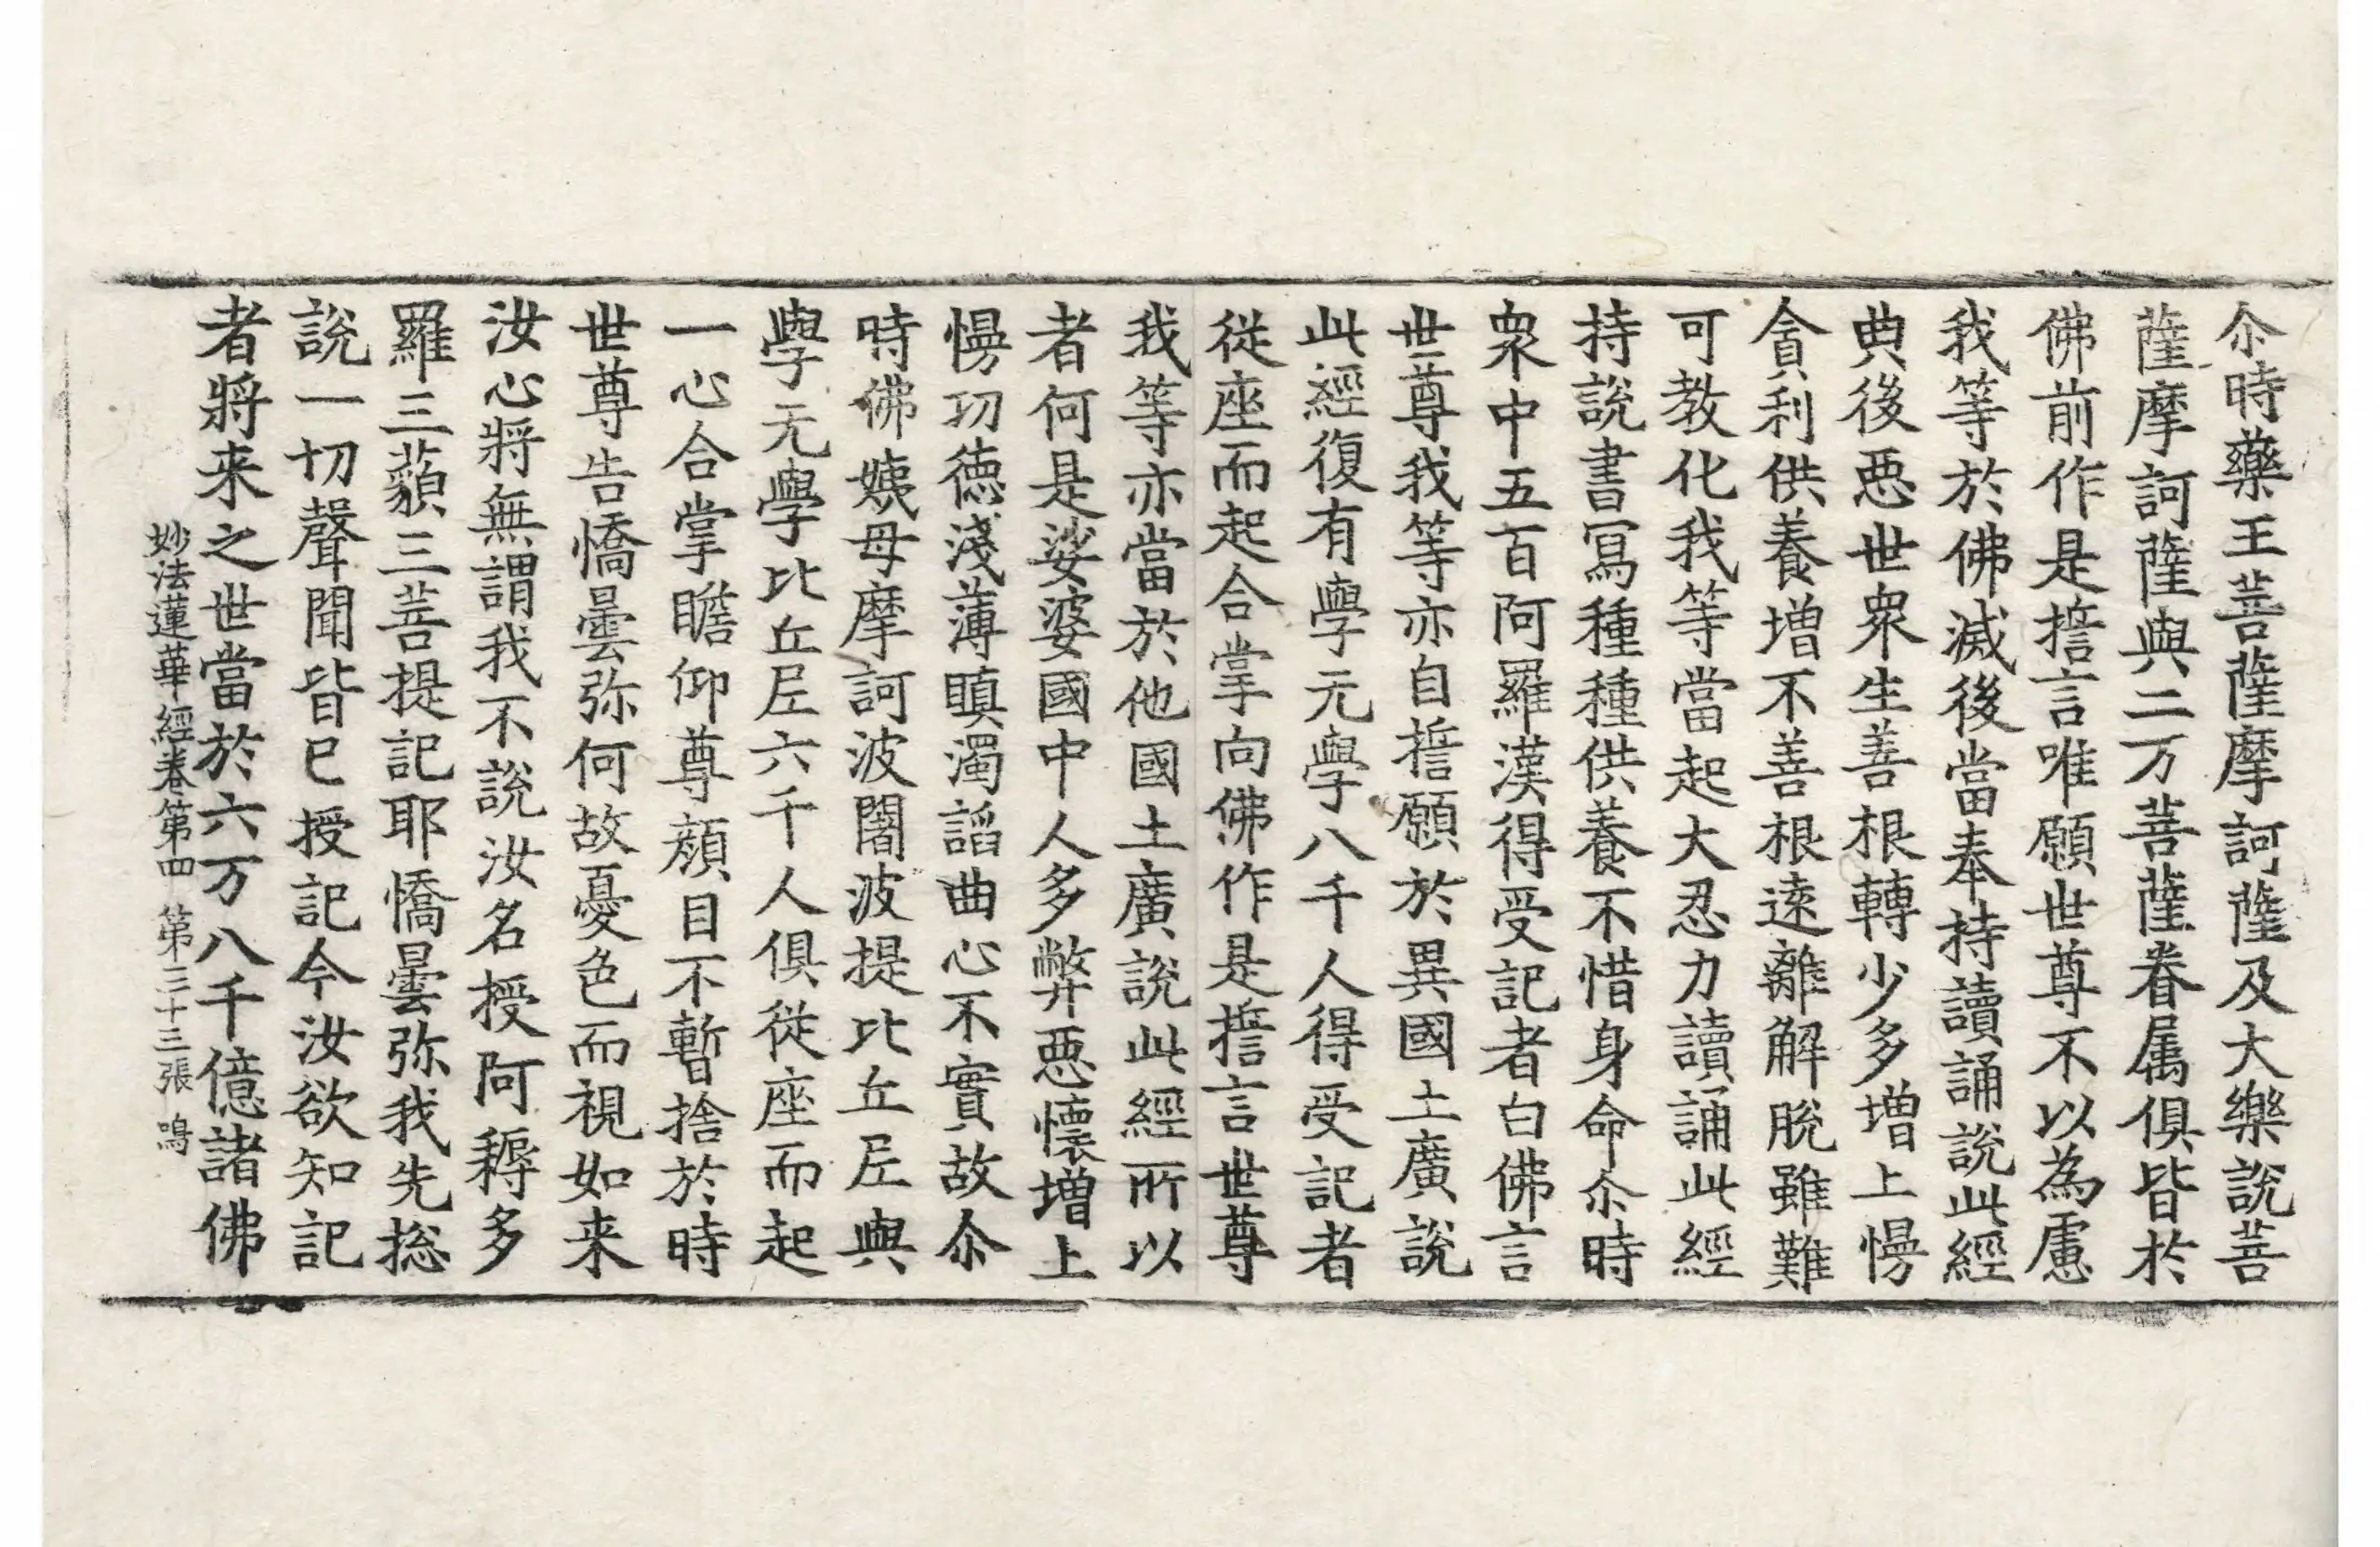 尒時藥王菩薩摩訶薩及大樂說菩
薩摩訶薩與二万菩薩眷属俱皆於
佛前作是擔言唯願世尊不以為慮
我等於佛滅後當奉持讀誦說此經
典後惡世衆生善根轉少多增上慢
貪利供養增不善根遠離解脫雖難
可教化我等當起大忍力讀誦此經
持說書寫種種供養不惜身命尒時
衆中五百阿羅漢得受記者白佛言
世尊我等亦自擔願於異國土廣說
此經復有學无學八千人得受記者
從座而起合掌向佛作是擔言世尊
我等亦當於他國土廣說此經所以
者何是娑婆國中人多弊惡懷增上
慢功德淺薄瞋濁謟曲心不實故尒
時佛姨母摩訶波闍波提比丘尼與
學无學比丘尼六千人俱從座而起
一心合掌瞻仰尊顏目不暫捨於時
世尊告憍曇弥何故憂色而視如来
汝心將無謂我不說汝名授阿耨多
羅三藐三菩提記耶憍曇弥我先捴
說一切聲聞皆已授記今汝欲知記
者將来之世當於六万八千億諸佛
妙法蓮華經卷第四 第三十三張 鳴